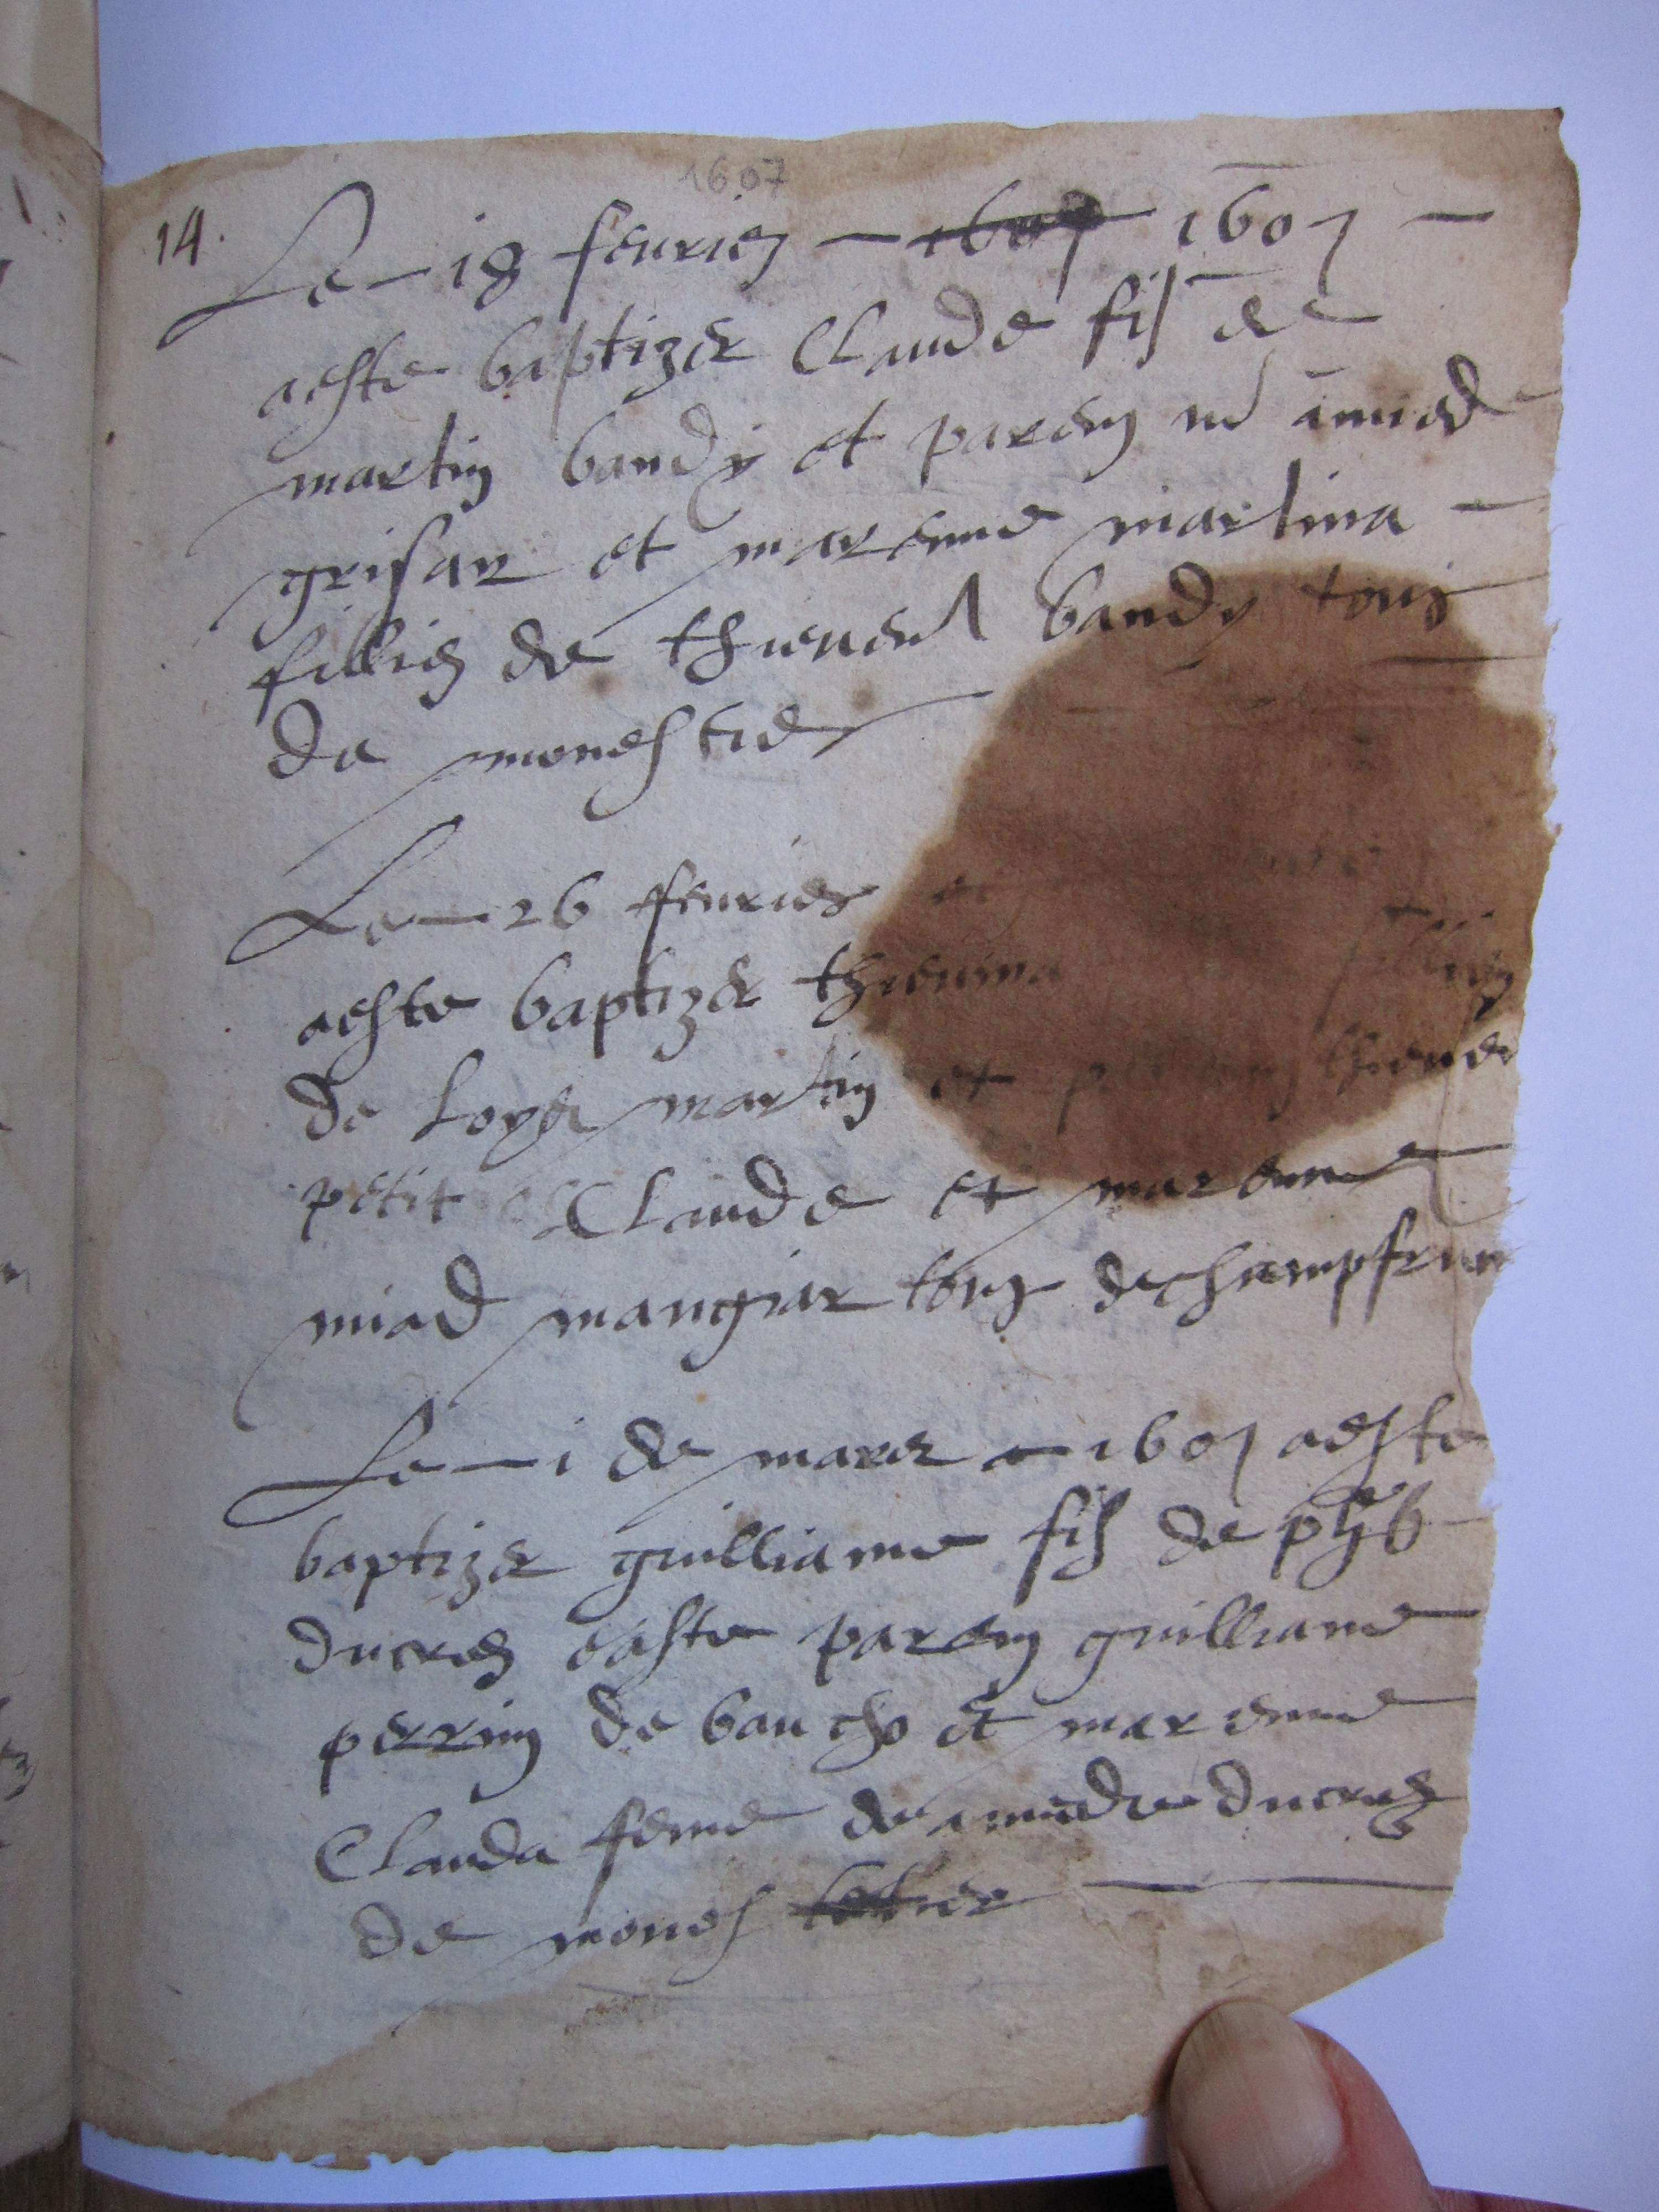 1607
14.
Le 18 feurier 1607
aeste baptizer Claude fis de
martin baudy et parein amied
grisar et mareine martina
fillie de thieuent baudy tous
de monestie
Le 26 feurier
aeste baptizer thieuina fillie
de loys martin et parein
petit Claude et mareine
miad mangiar tous de champfru
Le 1 de mars 1607 aeste
baptizer guilliame fis de phb
ducres easte parein guilliame
perrin de baucho et mareine
Clauda feme de amedie ducres
de mones